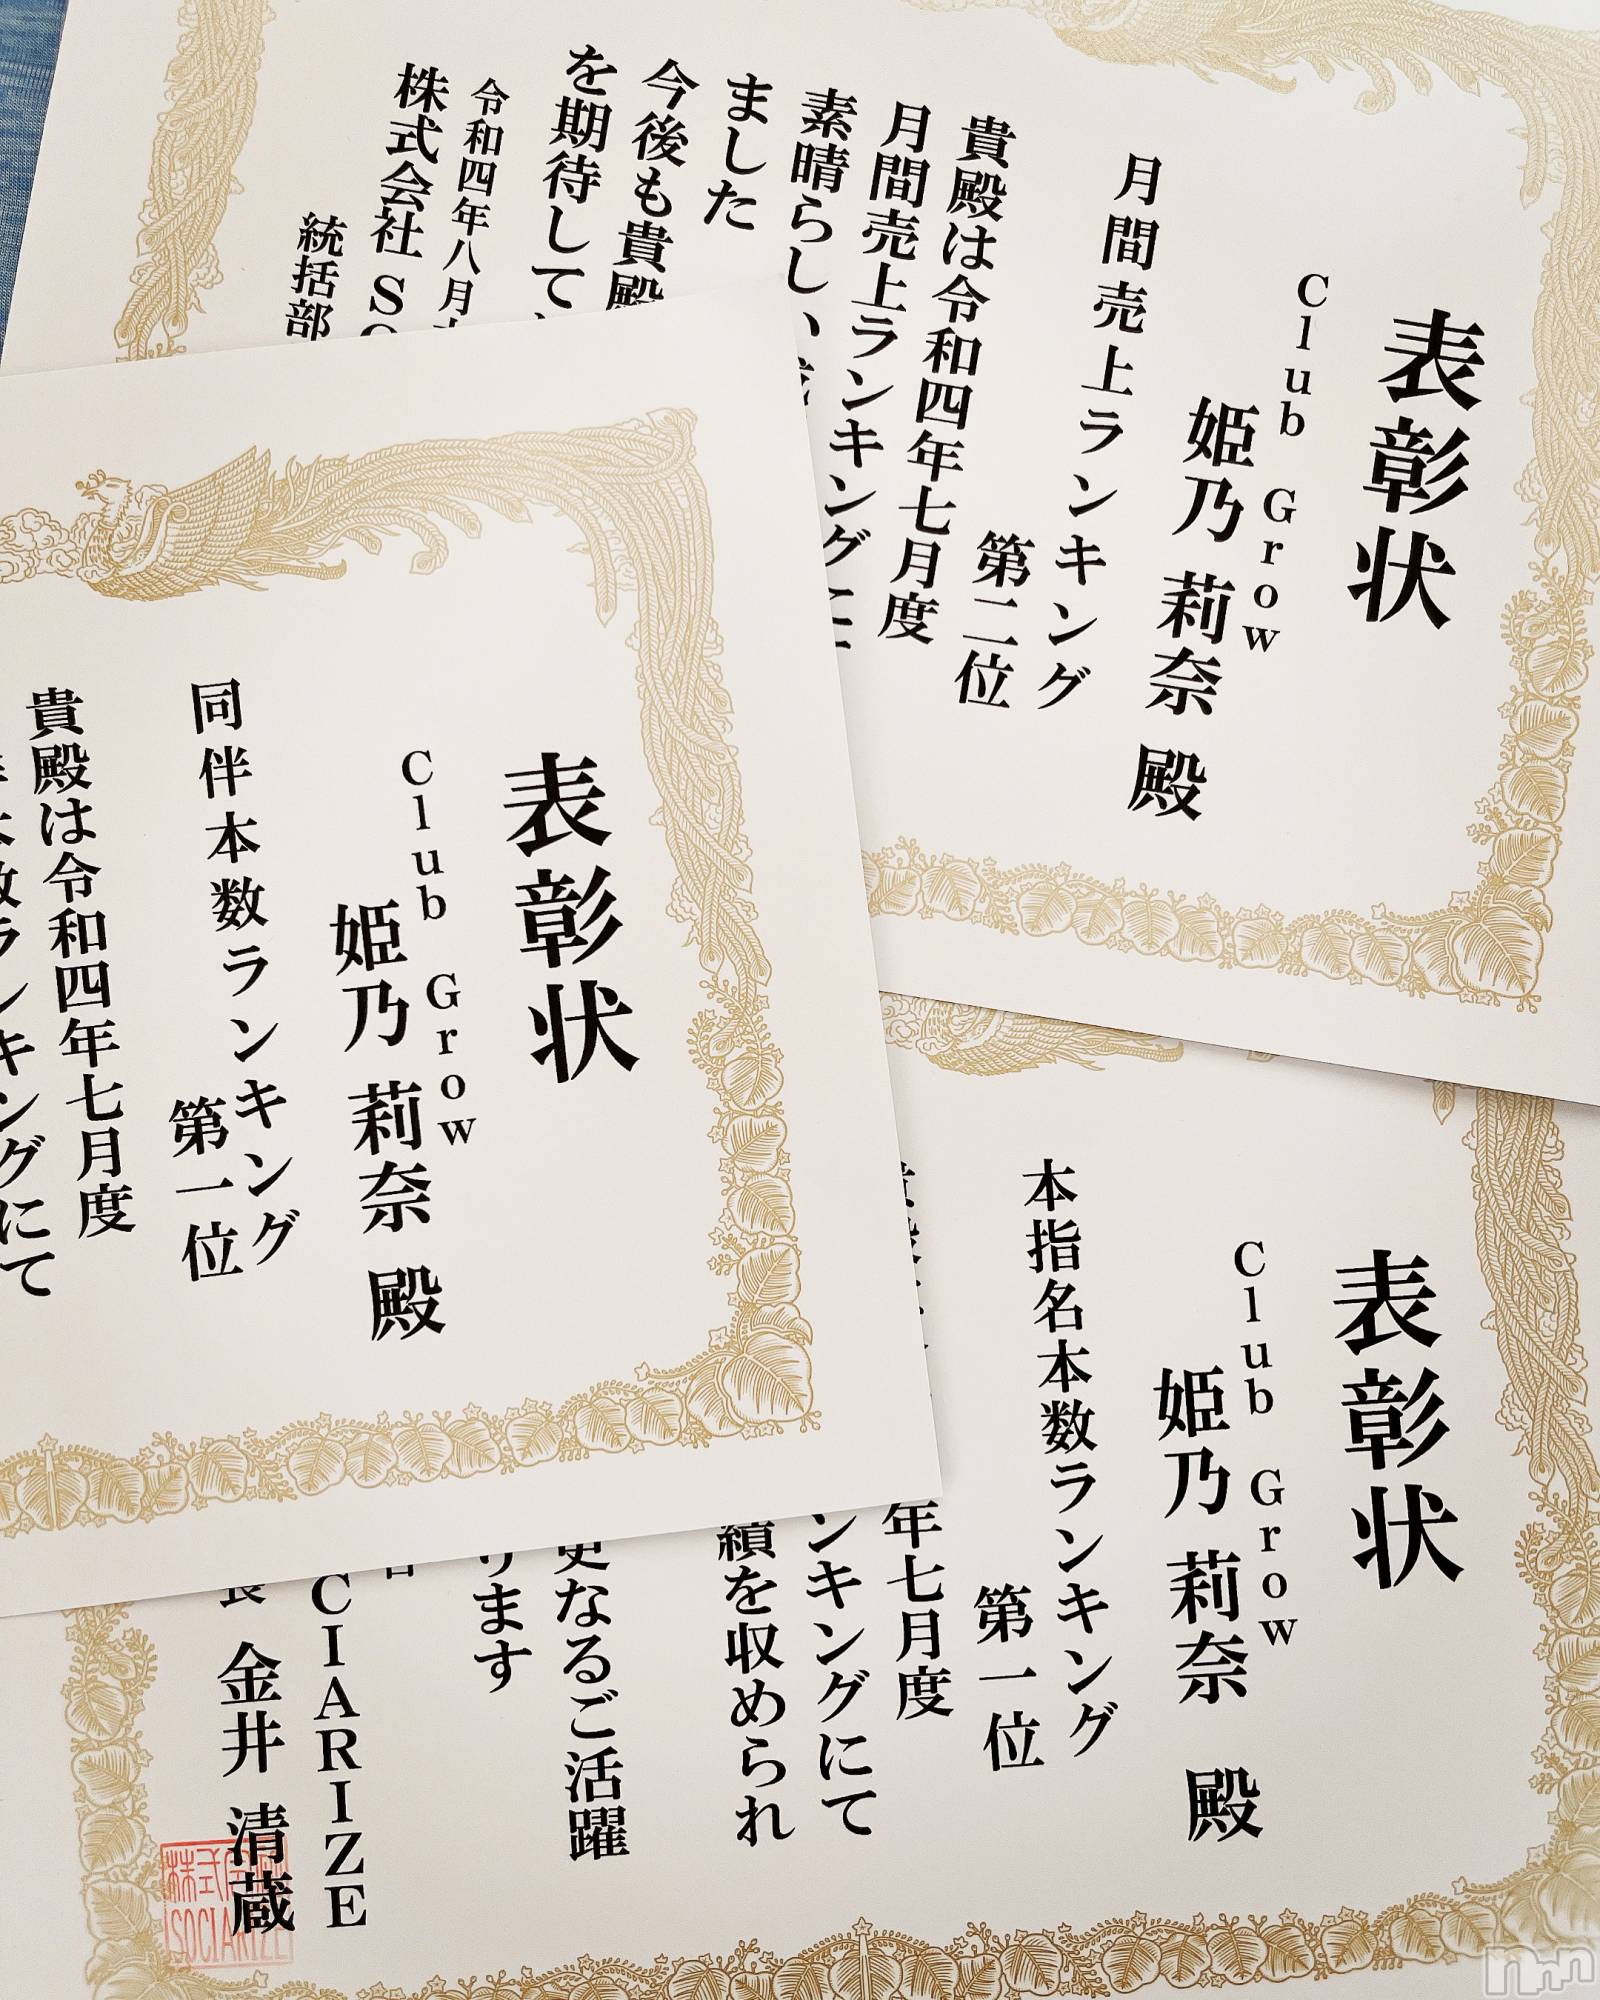 表彰状
Club Grow
姫乃 莉奈 殿
月間売上ランキング
第二位
貴殿は令和四年七月度
月間売上ランキングに
素晴らしい
ました
今後も貴殿
を期待して
令和四年八月
株式会社 SO
統括部
表彰状
Club Grow
姫乃 莉奈 殿
同伴本数ランキング
第一位
貴殿は令和四年七月度
本数ランキングにて
表彰状
Club Grow
姫乃 莉奈 殿
本指名本数ランキング
第一位
年七月度
ンキングにて
績を収められ
更なるご活躍
ります
CIARIZE
長 金井 清蔵
株式会
SOCIARIZE